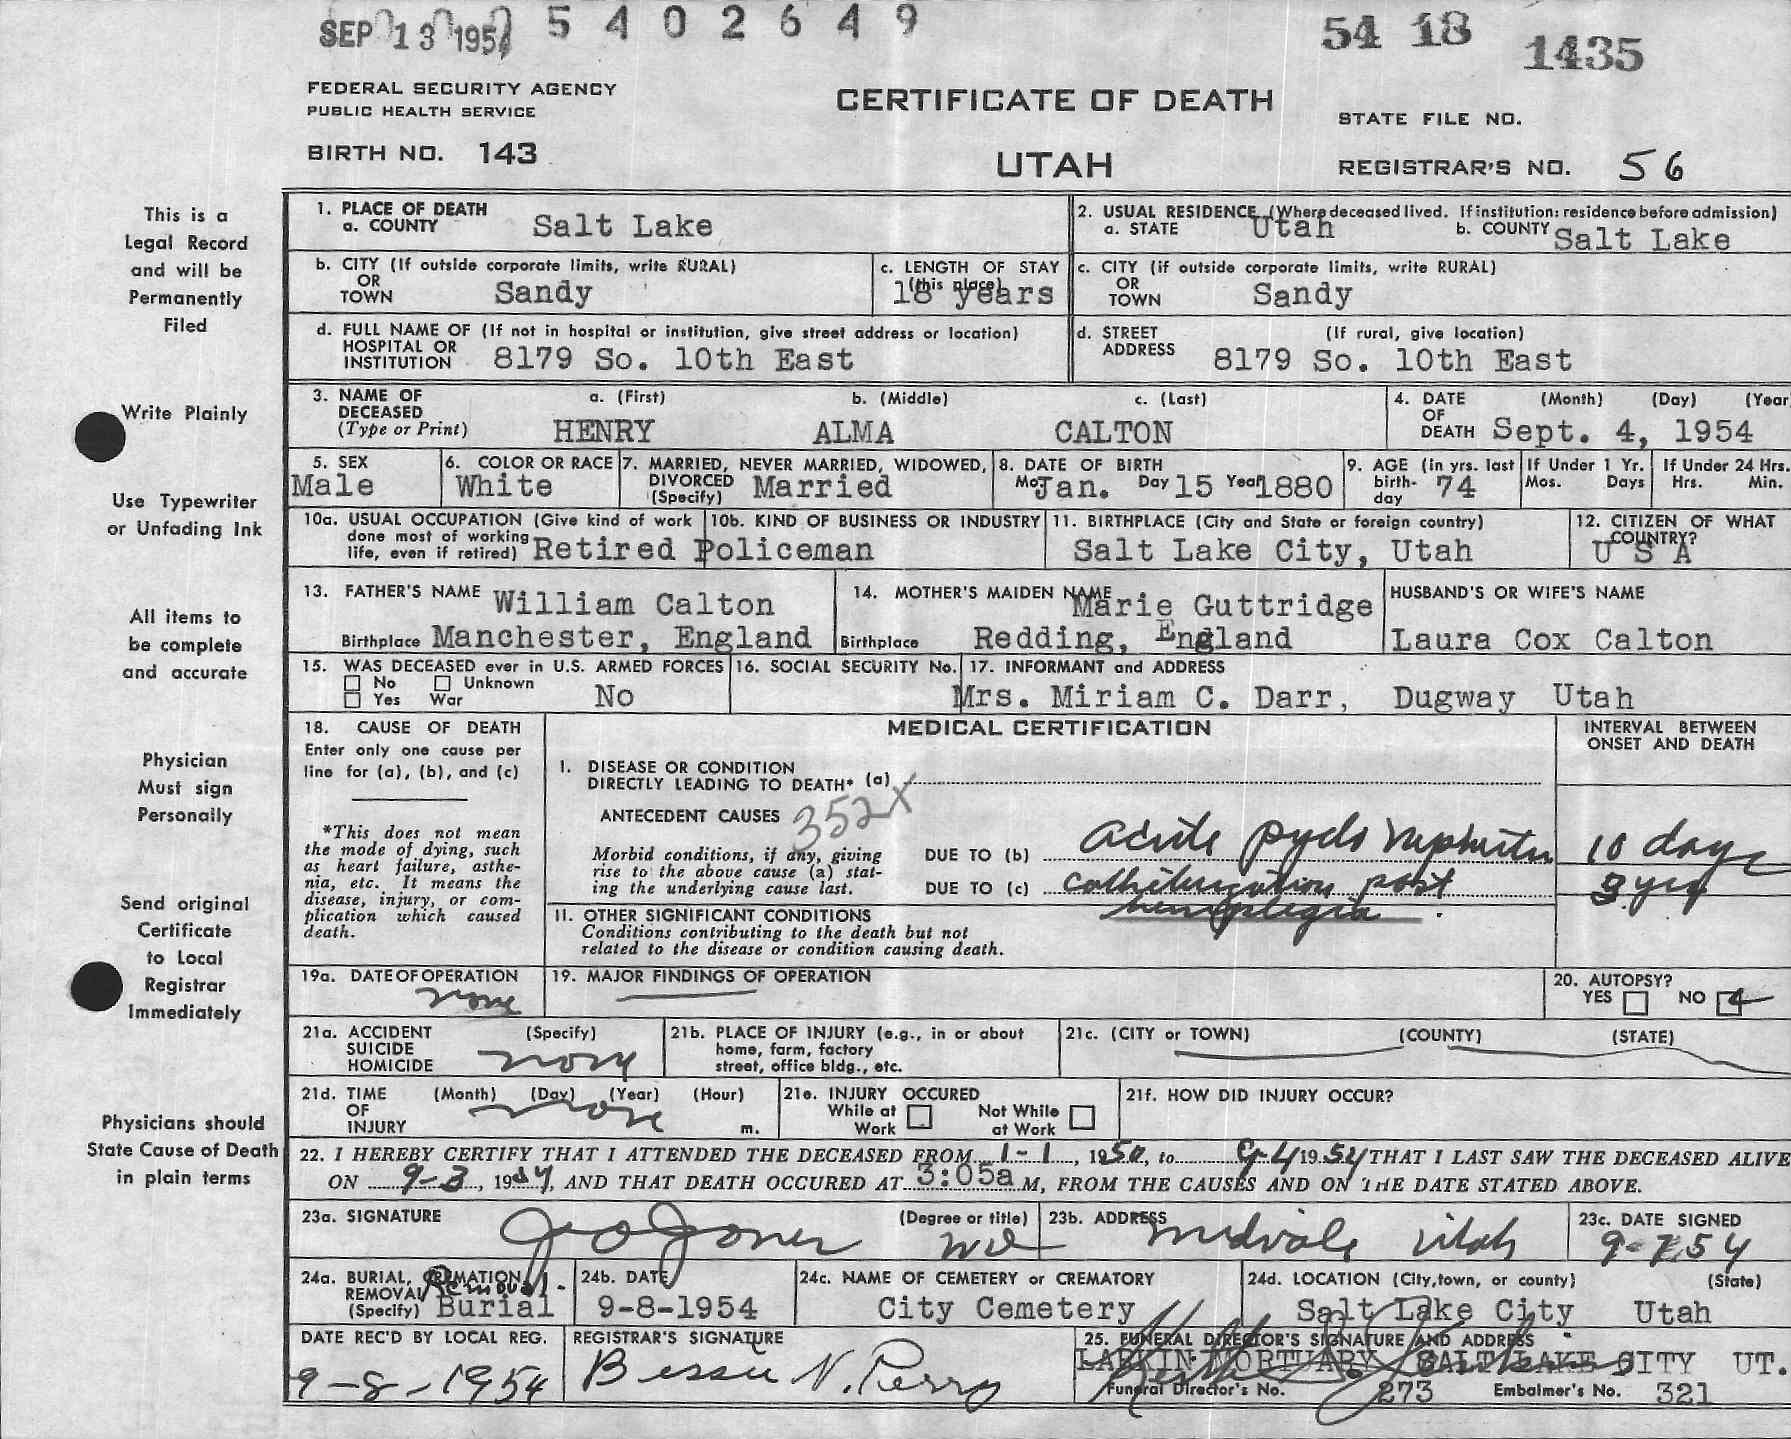 SEP 13 1954 5 4 0 2 6 4 9 54 18 1435
FEDERAL SECURITY AGENCY
PUBLIC HEALTH SERVICE
CERTIFICATE OF DEATH
STATE FILE NO.
BIRTH NO. 143
UTAH
REGISTRAR'S NO. 56
This is a
Legal Record
and will be
Permanently
Filed
Write Plainly
Use Typewriter
or Unfading Ink
All items to
be complete
and accurate
Physician
Must sign
Personally
Send original
Certificate
to Local
Registrar
Immediately
Physicians should
State Cause of Death
in plain terms
1. PLACE OF DEATH
a. COUNTY Salt Lake
2. USUAL RESIDENCE (Where deceased lived. If institution: residence before admission)
a. STATE Utah b. COUNTY Salt Lake
b. CITY (If outside corporate limits, write RURAL)
OR
TOWN Sandy
c. LENGTH OF STAY
(this place)
18 years
c. CITY (if outside corporate limits, write RURAL)
OR
TOWN Sandy
d. FULL NAME OF (If not in hospital or institution, give street address or location)
HOSPITAL OR
INSTITUTION 8179 So. 10th East
d. STREET (If rural, give location)
ADDRESS 8179 So. 10th East
3. NAME OF a. (First) b. (Middle) c. (Last)
DECEASED
(Type or Print) HENRY ALMA CALTON
4. DATE (Month) (Day) (Year
OF
DEATH Sept. 4, 1954
5. SEX
Male
6. COLOR OR RACE
White
7. MARRIED, NEVER MARRIED, WIDOWED,
DIVORCED
(Specify) Married
8. DATE OF BIRTH
Mo Jan. Day 15 Year 1880
9. AGE (in yrs. last
birth-
day 74
If Under 1 Yr.
Mos. Days
If Under 24 Hrs.
Hrs. Min.
10a. USUAL OCCUPATION (Give kind of work
done most of working
life, even if retired) Retired Policeman
10b. KIND OF BUSINESS OR INDUSTRY
11. BIRTHPLACE (City and State or foreign country)
Salt Lake City, Utah
12. CITIZEN OF WHAT
COUNTRY?
U S A
13. FATHER'S NAME William Calton
Birthplace Manchester, England
14. MOTHER'S MAIDEN NAME Marie Guttridge
Birthplace Redding, England
HUSBAND'S OR WIFE'S NAME
Laura Cox Calton
15. WAS DECEASED ever in U.S. ARMED FORCES
No Unknown
Yes War No
16. SOCIAL SECURITY No.
17. INFORMANT and ADDRESS
Mrs. Miriam C. Darr, Dugway Utah
18. CAUSE OF DEATH
Enter only one cause per
line for (a), (b), and (c)
*This does not mean
the mode of dying, such
as heart failure, asthe-
nia, etc. It means the
disease, injury, or com-
plication which caused
death.
MEDICAL CERTIFICATION
INTERVAL BETWEEN
ONSET AND DEATH
I. DISEASE OR CONDITION
DIRECTLY LEADING TO DEATH* (a)
ANTECEDENT CAUSES 352X
Morbid conditions, if any, giving
rise to the above cause (a) stat-
ing the underlying cause last.
DUE TO (b) acute pyelo nephritis 10 days
DUE TO (c) catheterization post yrs
hemiplegia
II. OTHER SIGNIFICANT CONDITIONS
Conditions contributing to the death but not
related to the disease or condition causing death.
19a. DATE OF OPERATION
none
19. MAJOR FINDINGS OF OPERATION
20. AUTOPSY?
YES NO
21a. ACCIDENT (Specify)
SUICIDE
HOMICIDE none
21b. PLACE OF INJURY (e.g., in or about
home, farm, factory
street, office bldg., etc.
21c. (CITY or TOWN) (COUNTY) (STATE)
21d. TIME (Month) (Day) (Year) (Hour)
OF
INJURY none m.
21e. INJURY OCCURED
While at Work Not While at Work
21f. HOW DID INJURY OCCUR?
22. I HEREBY CERTIFY THAT I ATTENDED THE DECEASED FROM 1-1, 1950, to 9-4 1954 THAT I LAST SAW THE DECEASED ALIVE
ON 9-3, 1954, AND THAT DEATH OCCURED AT 3:05a M, FROM THE CAUSES AND ON THE DATE STATED ABOVE.
23a. SIGNATURE (Degree or title)
J O Jones MD
23b. ADDRESS
Midvale Utah
23c. DATE SIGNED
9-7-54
24a. BURIAL, CREMATION,
REMOVAL Removal-
(Specify) Burial
24b. DATE
9-8-1954
24c. NAME OF CEMETERY or CREMATORY
City Cemetery
24d. LOCATION (City, town, or county) (State)
Salt Lake City Utah
DATE REC'D BY LOCAL REG.
9-8-1954
REGISTRAR'S SIGNATURE
Bessie N. Perry
25. FUNERAL DIRECTOR'S SIGNATURE AND ADDRESS
LARKIN MORTUARY SALT LAKE CITY UT.
Funeral Director's No. 273 Embalmer's No. 321